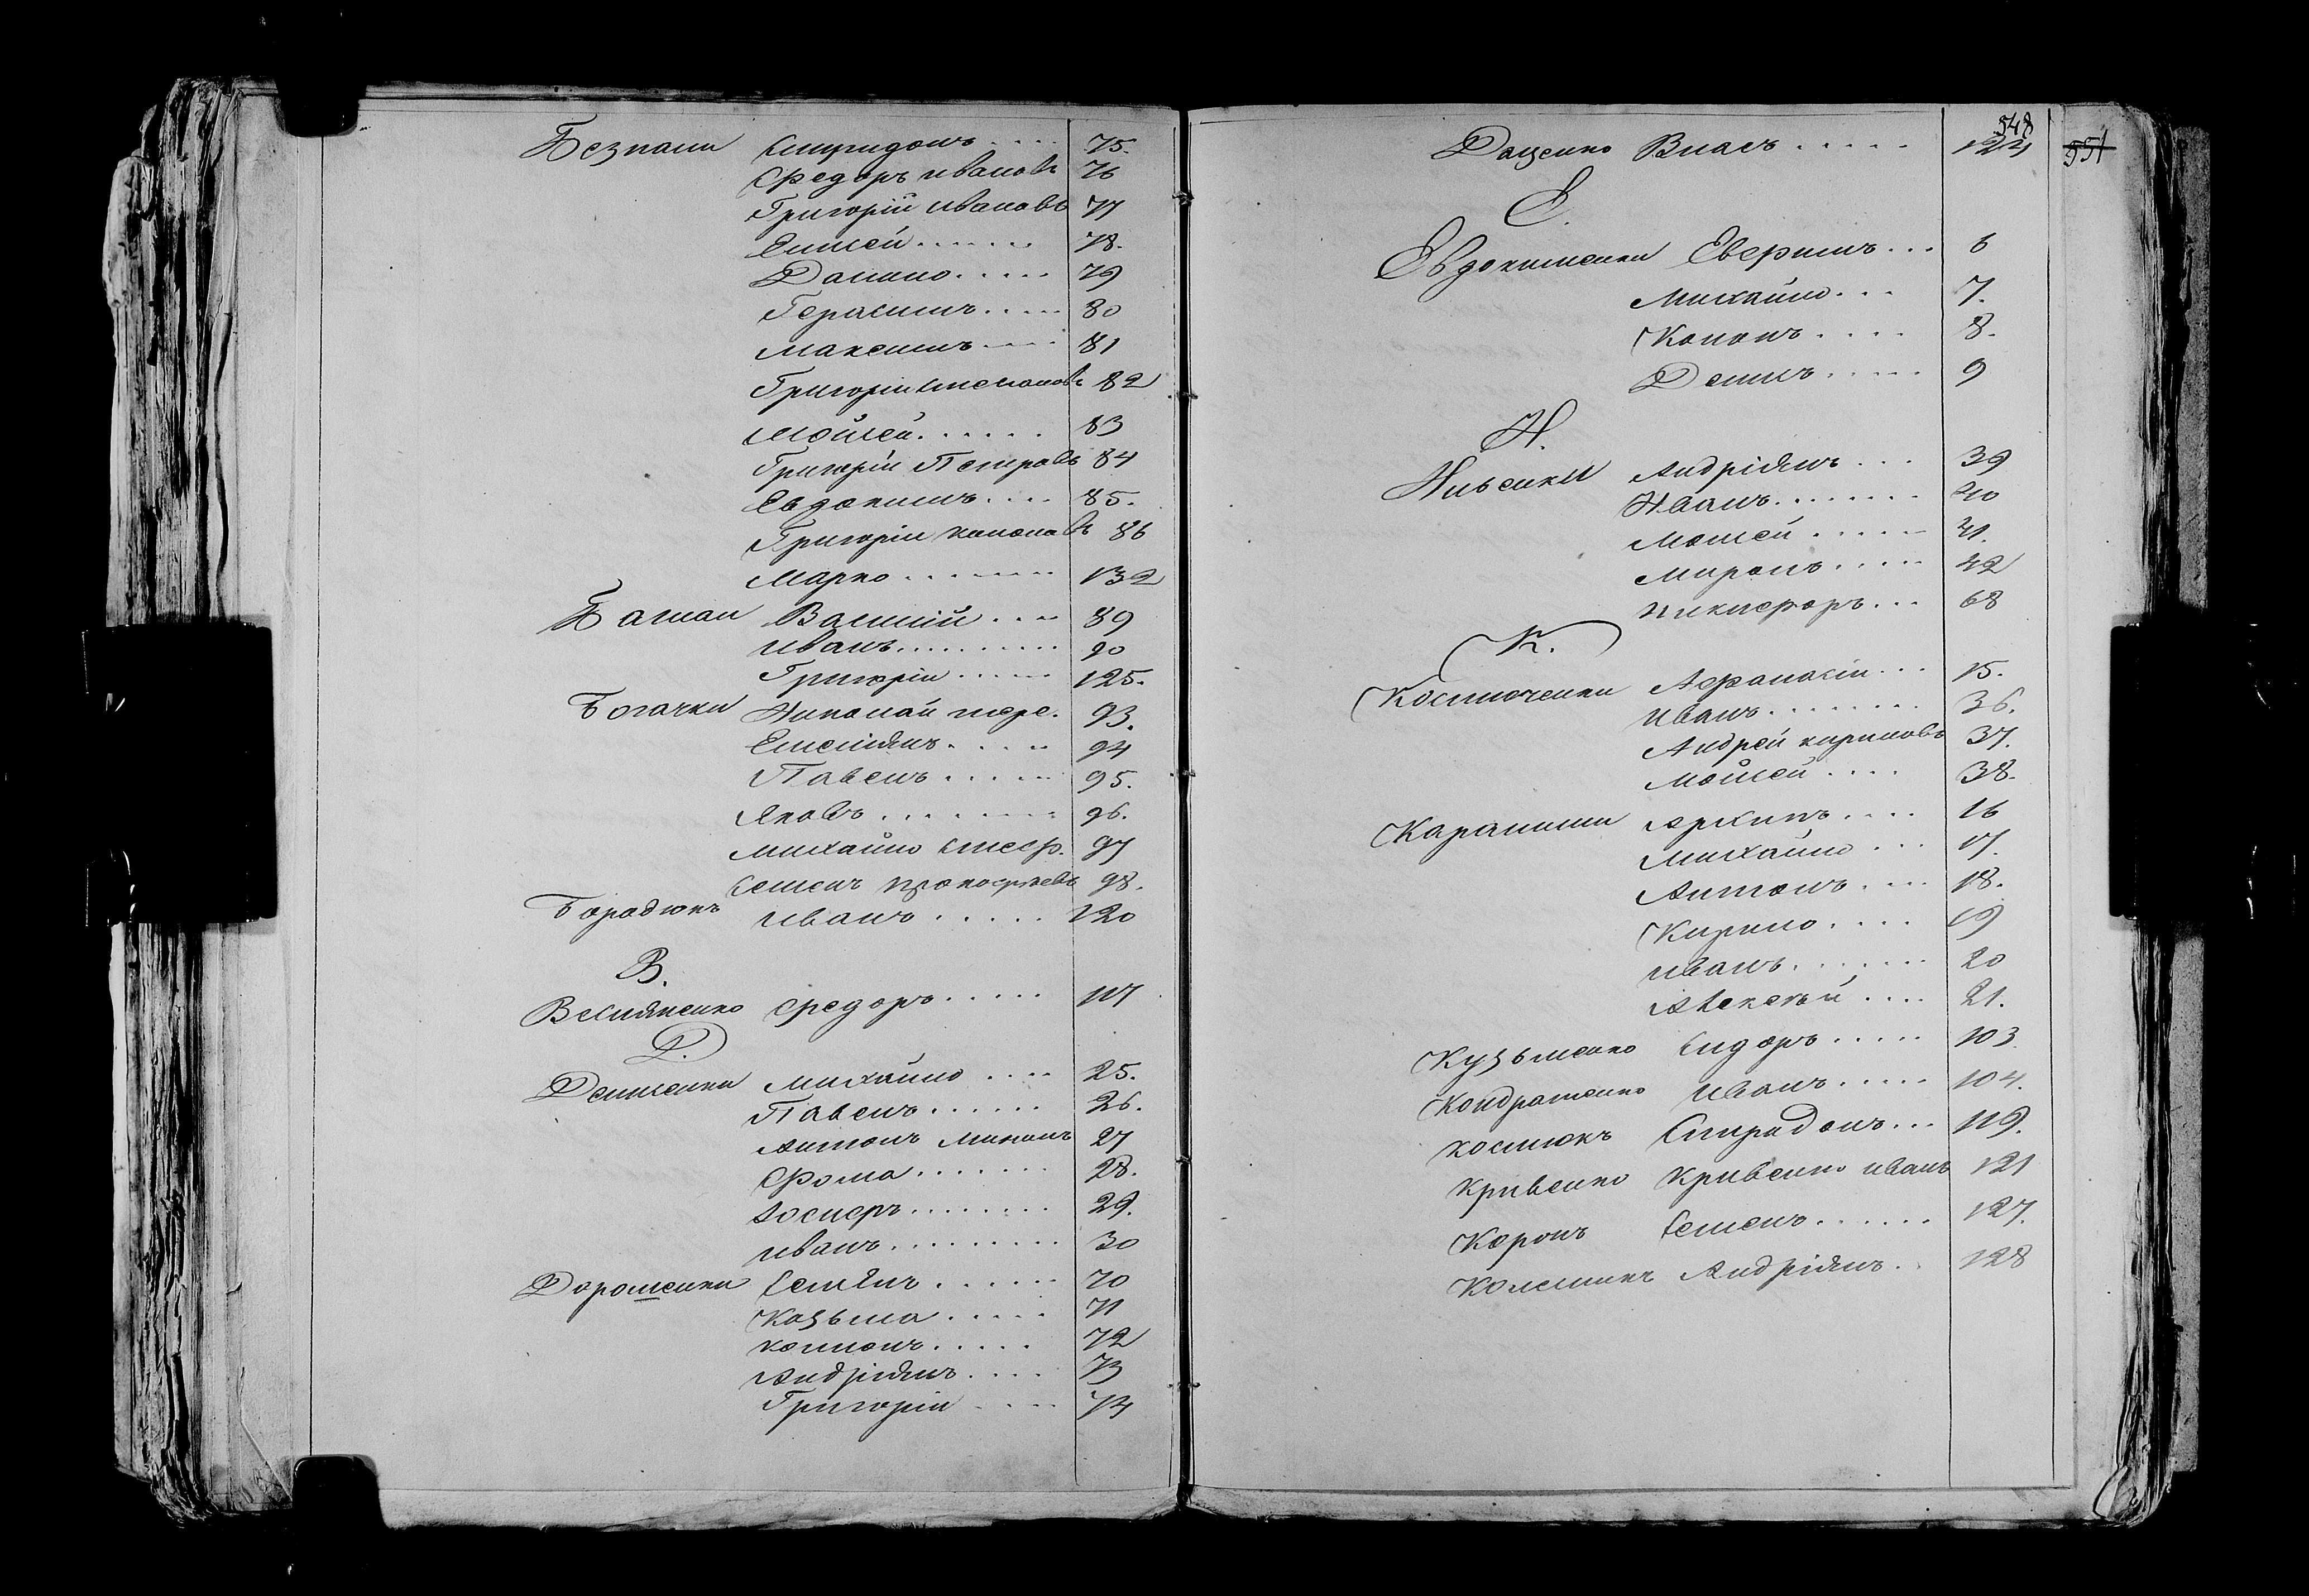 Безпали Спиридонъ..... 75.
Федоръ Ивановъ 76
Григорій Ивановъ 77
Елисей....... 78.
Данило..... 79
Герасимъ..... 80
Максимъ.... 81
Григорій Степановъ 82
Мойсей...... 83
Григорій Петровъ 84
Евдокимъ.... 85.
Григорій Кононовъ 86
Марко....... 132
Василій.... 89
Иванъ.......... 90
Григорій..... 125.
Богачки Николай 93.
Емеліянъ..... 94
Павелъ...... 95.
Яковъ........ 96.
Михайло 97
Семенъ Прокофьевъ 98.
Бородюкъ Иванъ..... 120
В.
Федоръ..... 117
Д.
Денисенки Михайло.... 25.
Павелъ...... 26.
Антонъ 27
Фома....... 28.
Іосифъ........ 29.
Иванъ......... 30
Дорошенки Семенъ...... 70
Козьма..... 71
72
Андріянъ.... 73
Григорій.... 74
548
Даценко Власъ..... 124
551
Е.
Евдокименки ... 6
Михайло... 7.
Кононъ.... 8.
Демидъ..... 9
И.
Ильенки Андріянъ... 39
Иванъ....... 40
Мойсей..... 41.
Миронъ..... 42
Никифоръ... 68
К.
Костюченки Афанасій... 15.
Иванъ........ 36.
Андрей Кириловъ 37.
Мойсей.... 38.
Архипъ.... 16
Михайло... 17.
Антонъ.... 18.
Кирило.... 19
Иванъ....... 20
Алексѣй.... 21.
Кузьменко Сидоръ..... 103
Кондратенко Иванъ..... 104.
Костюкъ Спиридонъ... 119.
Кривенко Кривенко Иванъ 121
Семенъ...... 127.
Колесникъ Андріянъ.. 128